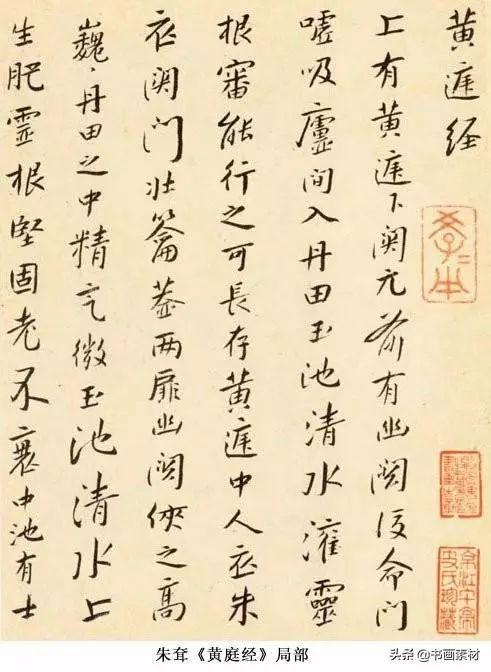 黄庭经
上有黄庭下関元前有幽闕後命门
嘘吸廬间入丹田玉池清水灌靈
根審能行之可長存黄庭中人衣朱
衣関门壮籥盖两扉幽闕俠之高
巍々丹田之中精气微玉池清水上
生肥靈根堅固老不衰中池有士
朱耷《黄庭经》局部
头条 @书画素材